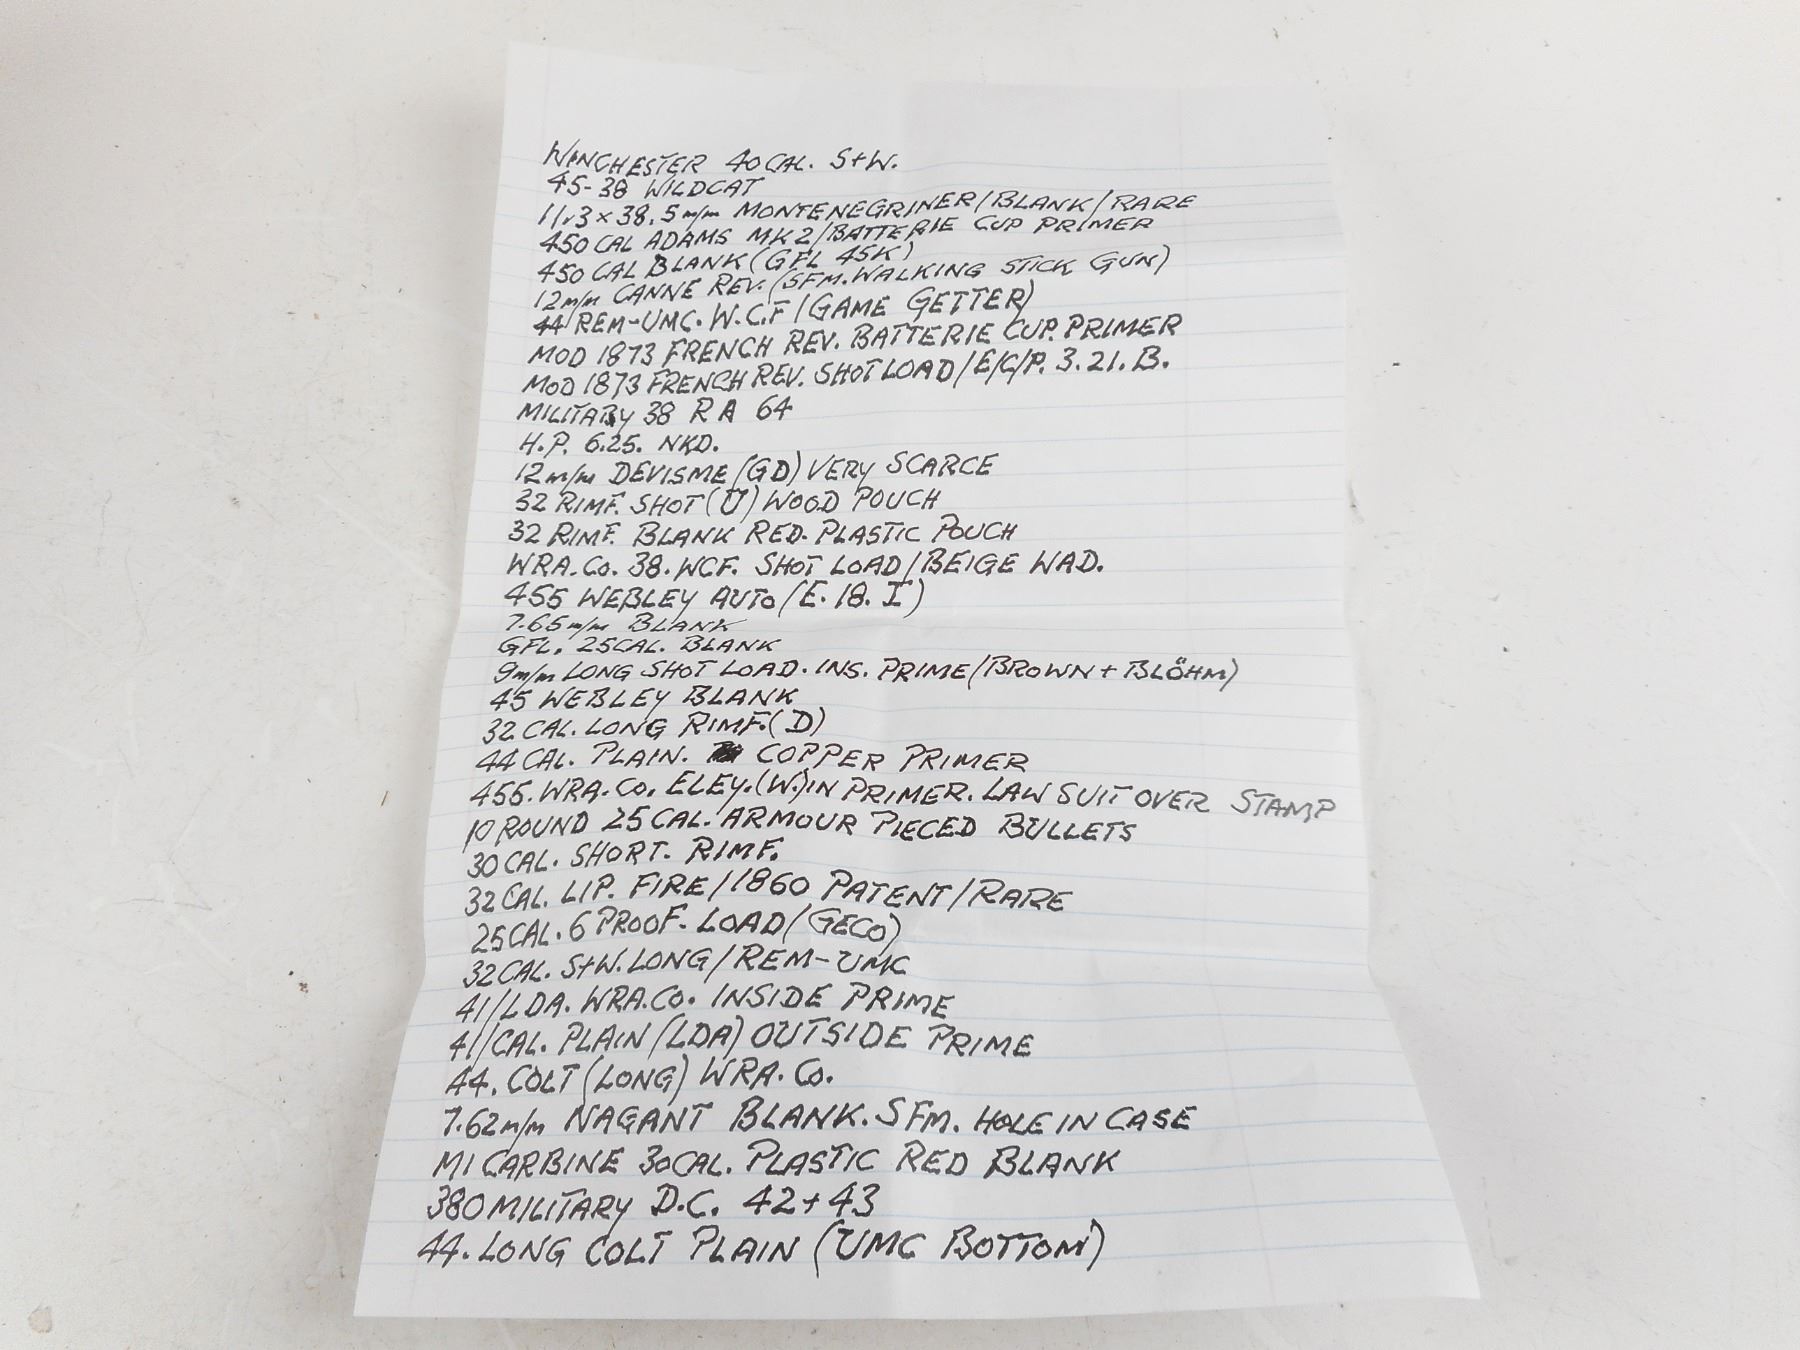 WINCHESTER 40 CAL. S+W.
45-38 WILDCAT
11.3 x 38.5 m/m MONTENEGRINER/BLANK/RARE
450 CAL ADAMS MK2/BATTERIE CUP PRIMER
450 CAL BLANK (GFL 45K)
12 m/m CANNE REV. (SFM. WALKING STICK GUN)
44 REM-UMC. W.C.F/(GAME GETTER)
MOD 1873 FRENCH REV. BATTERIE CUP. PRIMER
MOD 1873 FRENCH REV. SHOT LOAD/E/C/P. 3. 21. B.
MILITARY 38 R A 64
H.P. 6.25. NKD.
12 m/m DEVISME (GD) VERY SCARCE
32 RIMF. SHOT (U) WOOD POUCH
32 RIMF. BLANK RED. PLASTIC POUCH
WRA. Co. 38. WCF. SHOT LOAD/BEIGE WAD.
455 WEBLEY AUTO (E. 18. I)
7.65 m/m BLANK
GFL. 25 CAL. BLANK
9 m/m LONG SHOT LOAD. INS. PRIME/(BROWN + BLÖHM)
45 WEBLEY BLANK
32 CAL. LONG RIMF. (D)
44 CAL. PLAIN. COPPER PRIMER
455. WRA. Co. ELEY. (W.) IN PRIMER. LAW SUIT OVER STAMP
10 ROUND 25 CAL. ARMOUR PIECED BULLETS
30 CAL. SHORT. RIMF.
32 CAL. LIP. FIRE/1860 PATENT/RARE
25 CAL. 6 PROOF. LOAD/(GECO)
32 CAL. S+W. LONG/REM-UMC
41/LDA. WRA. Co. INSIDE PRIME
41/CAL. PLAIN (LDA) OUTSIDE PRIME
44. COLT (LONG) WRA. Co.
7.62 m/m NAGANT BLANK. SFM. HOLE IN CASE
M1 CARBINE 30 CAL. PLASTIC RED BLANK
380 MILITARY D.C. 42+43
44. LONG COLT PLAIN (UMC BOTTOM)